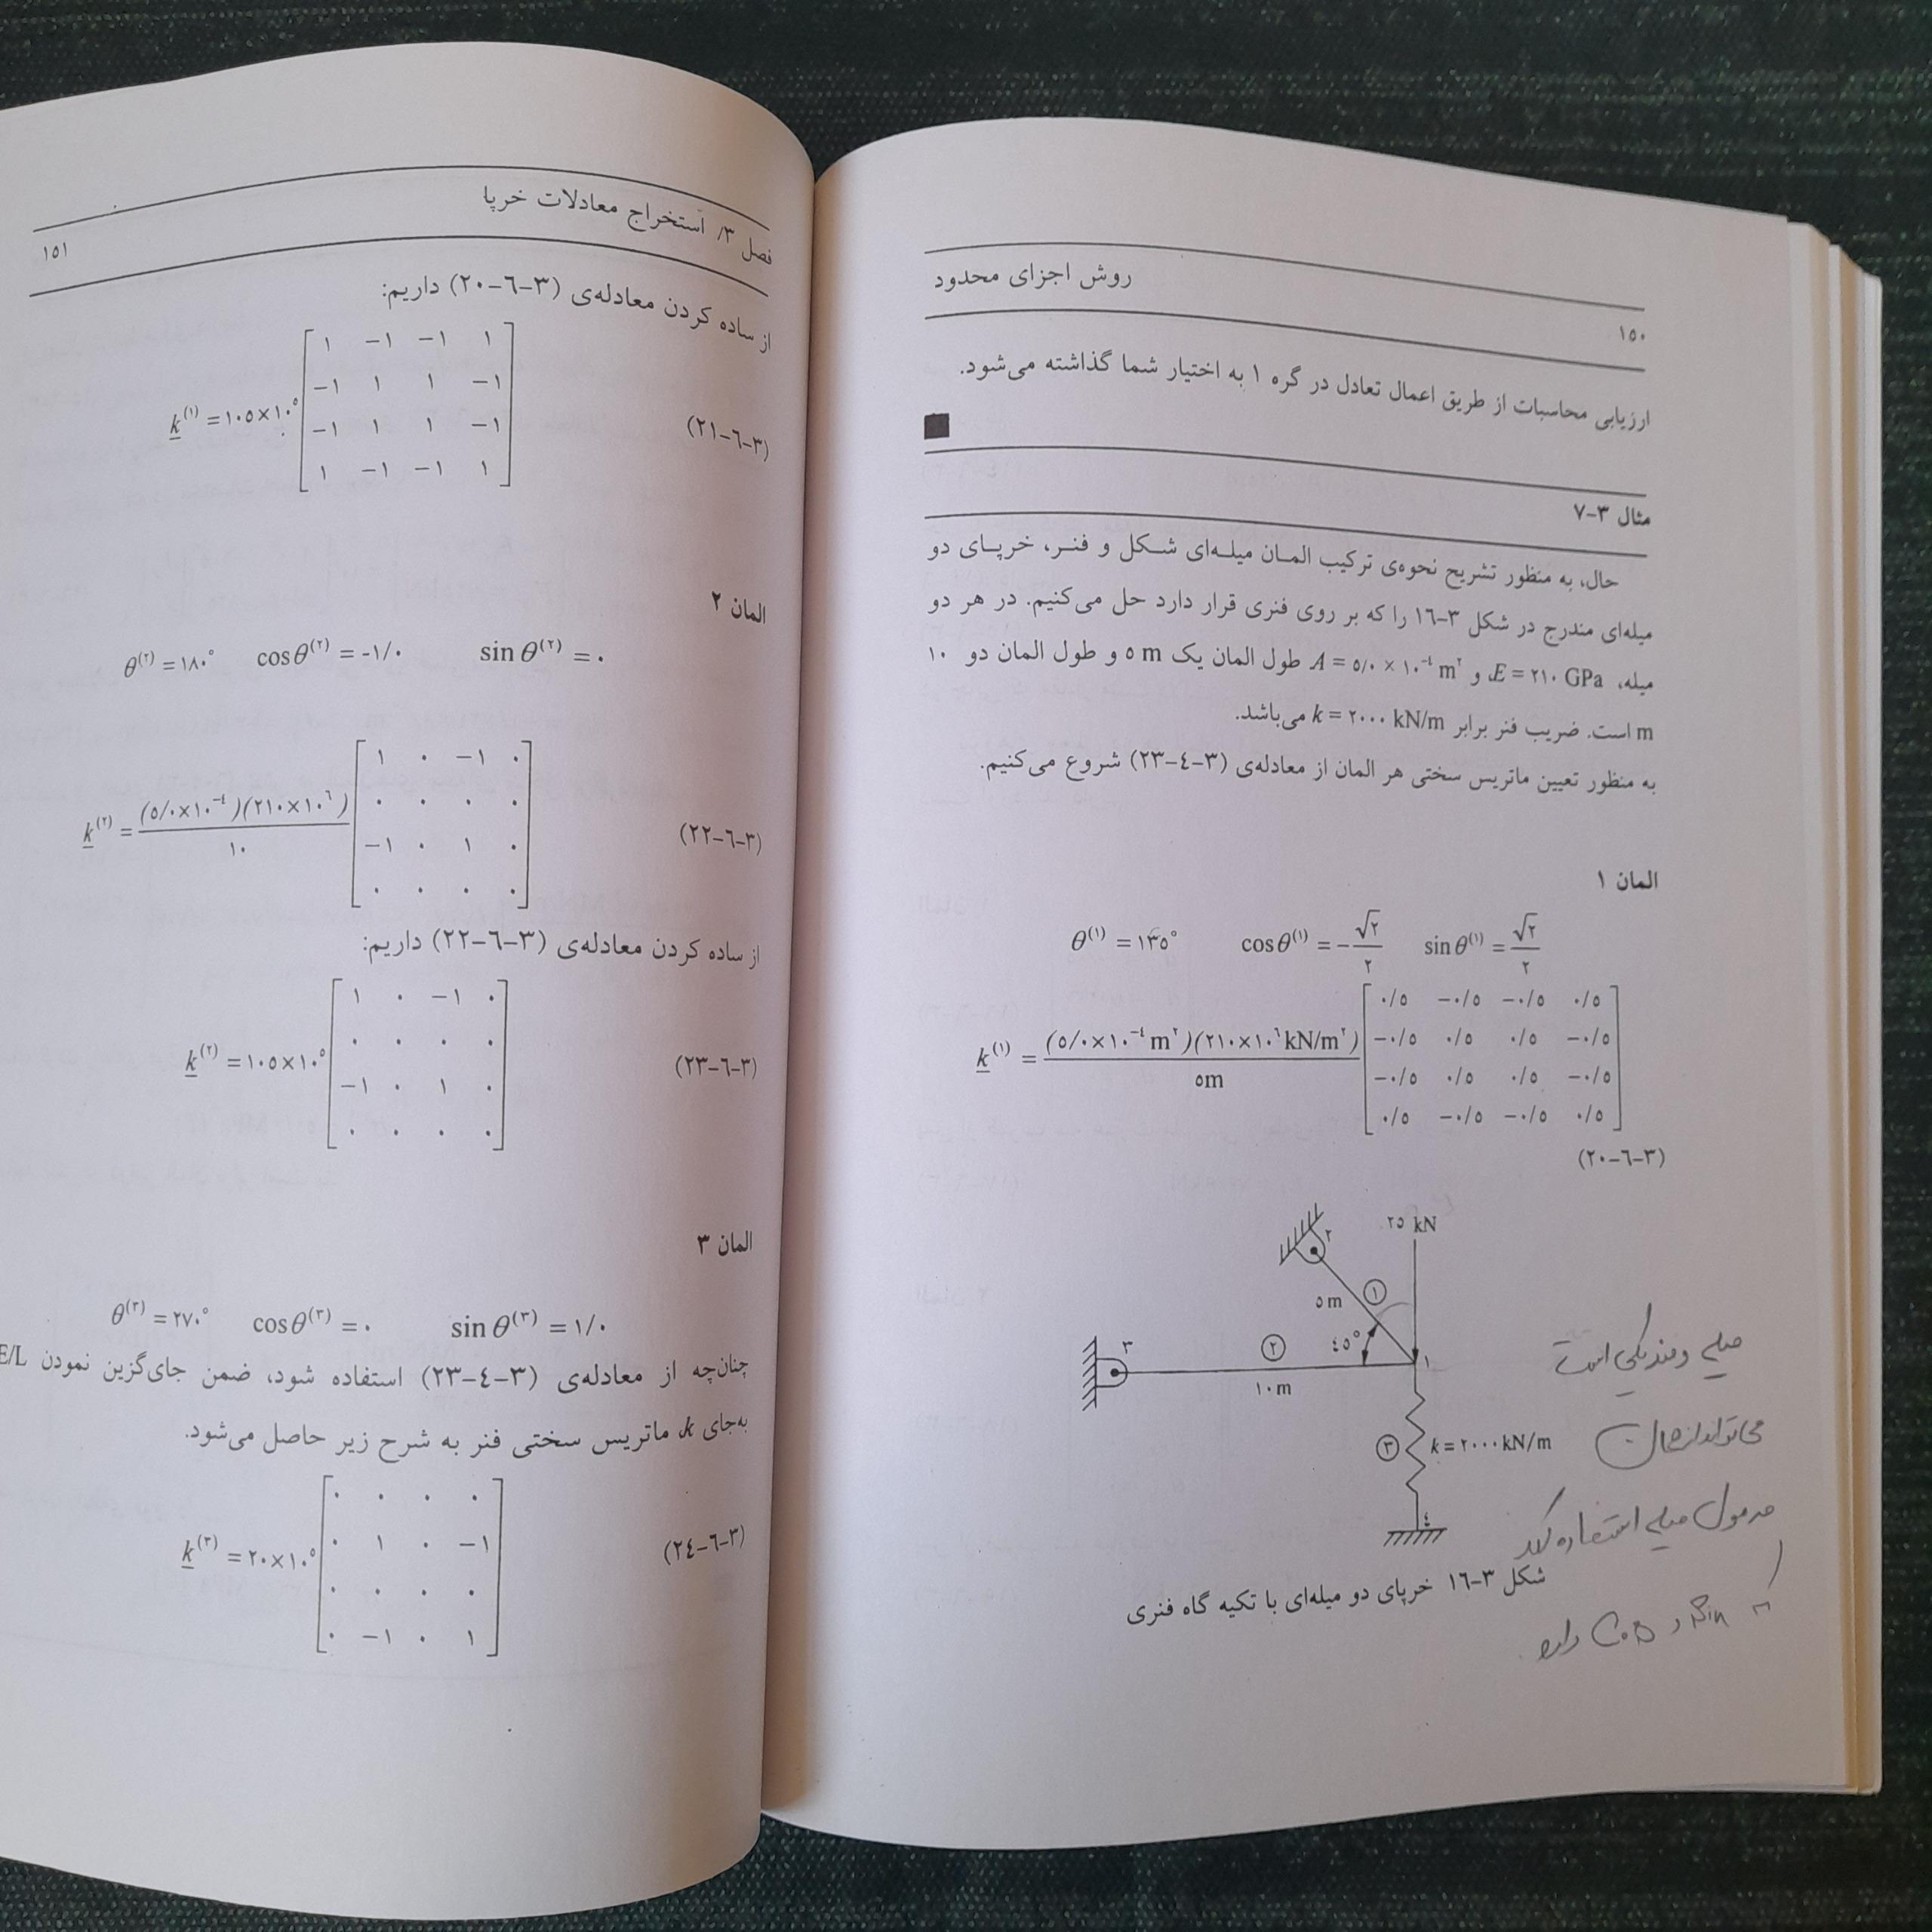 روش اجزای محدود
۱۵۰
ارزیابی محاسبات از طریق اعمال تعادل در گره ۱ به اختیار شما گذاشته می‌شود.
مثال ۳-۷
حال، به منظور تشریح نحوه‌ی ترکیب المـان میلـه‌ای شـکل و فنـر، خرپـای دو
میله‌ای مندرج در شکل ۳-۱۶ را که بر روی فنری قرار دارد حل می‌کنیم. در هر دو
میله، E = ۲۱۰ GPa و A = ۵/۰ × ۱۰⁻⁴ m² طول المان یک ۵ m و طول المان دو ۱۰
m است. ضریب فنر برابر k = ۲۰۰۰ kN/m می‌باشد.
به منظور تعیین ماتریس سختی هر المان از معادله‌ی (۳-۴-۲۳) شروع می‌کنیم.
المان ۱
θ⁽¹⁾ = ۱۳۵° cosθ⁽¹⁾ = -√۲/۲ sinθ⁽¹⁾ = √۲/۲
k⁽¹⁾ = (۵/۰×۱۰⁻⁴ m²)(۲۱۰×۱۰⁶ kN/m²) / ۵m
۰/۵ -۰/۵ -۰/۵ ۰/۵
-۰/۵ ۰/۵ ۰/۵ -۰/۵
-۰/۵ ۰/۵ ۰/۵ -۰/۵
۰/۵ -۰/۵ -۰/۵ ۰/۵
(۳-۶-۲۰)
۲۵ kN
۲
۱
۵ m
۴۵°
۳
۲
۱
۱۰ m
۳
k = ۲۰۰۰ kN/m
۴
شکل ۳-۱۶ خرپای دو میله‌ای با تکیه گاه فنری
میله و فنر یکی است
می‌تواند از همان
فرمول میله استفاده کند
Sin و Cos دارد
فصل ۳/ استخراج معادلات خرپا
۱۵۱
از ساده کردن معادله‌ی (۳-۶-۲۰) داریم:
k⁽¹⁾ = ۱۰۵×۱۰°
۱ -۱ -۱ ۱
-۱ ۱ ۱ -۱
-۱ ۱ ۱ -۱
۱ -۱ -۱ ۱
(۳-۶-۲۱)
المان ۲
θ⁽²⁾ = ۱۸۰° cosθ⁽²⁾ = -۱/۰ sinθ⁽²⁾ = ۰
k⁽²⁾ = (۵/۰×۱۰⁻⁴)(۲۱۰×۱۰⁶) / ۱۰
۱ ۰ -۱ ۰
۰ ۰ ۰ ۰
-۱ ۰ ۱ ۰
۰ ۰ ۰ ۰
(۳-۶-۲۲)
از ساده کردن معادله‌ی (۳-۶-۲۲) داریم:
k⁽²⁾ = ۱۰۵×۱۰°
۱ ۰ -۱ ۰
۰ ۰ ۰ ۰
-۱ ۰ ۱ ۰
۰ ۰ ۰ ۰
(۳-۶-۲۳)
المان ۳
θ⁽³⁾ = ۲۷۰° cosθ⁽³⁾ = ۰ sinθ⁽³⁾ = ۱/۰
چنان‌چه از معادله‌ی (۳-۴-۲۳) استفاده شود، ضمن جای‌گزین نمودن E/L
به‌جای k ماتریس سختی فنر به شرح زیر حاصل می‌شود.
k⁽³⁾ = ۲۰×۱۰°
۰ ۰ ۰ ۰
۰ ۱ ۰ -۱
۰ ۰ ۰ ۰
۰ -۱ ۰ ۱
(۳-۶-۲۴)